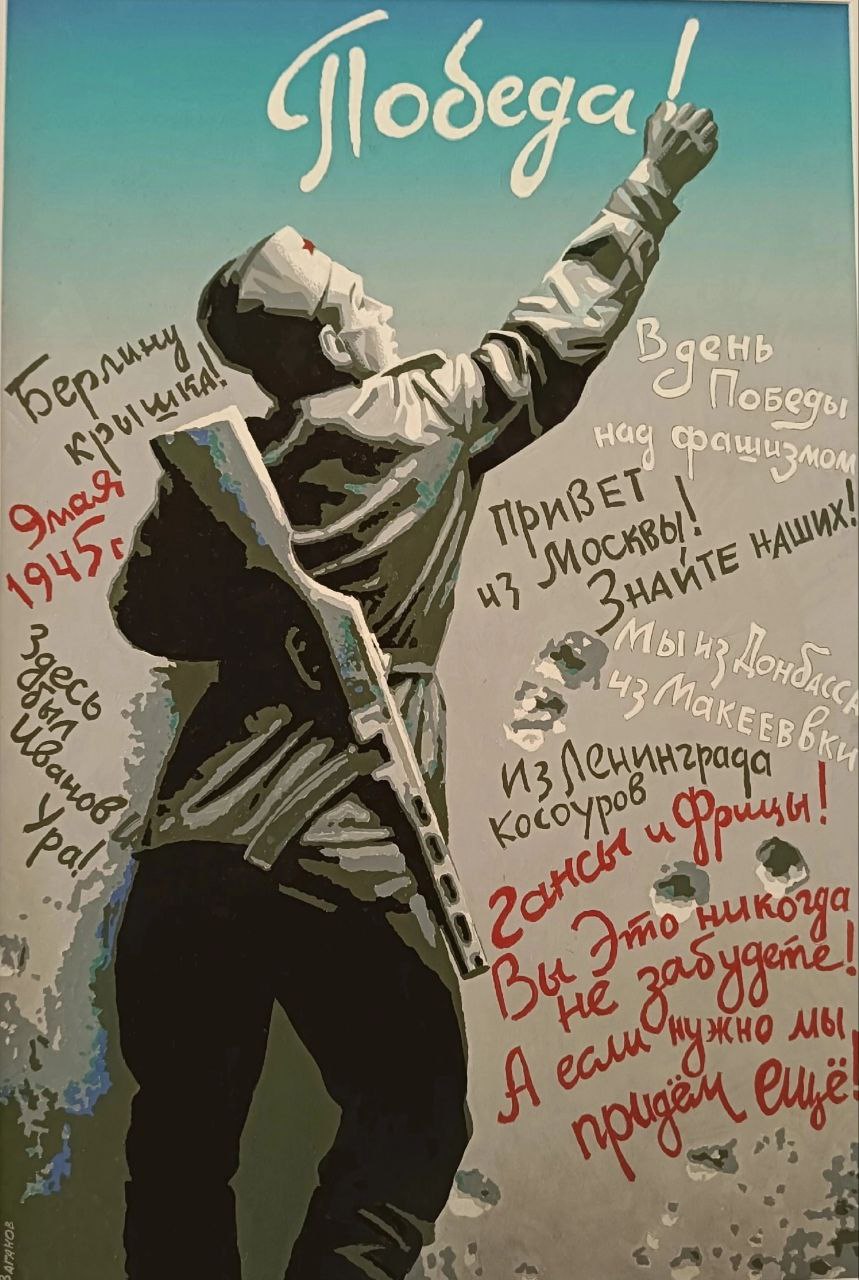 Победа!
Берлину
крышка!
9 мая
1945 г.
Здесь
был
Иванов
Ура!
В день
Победы
над фашизмом
Привет
из Москвы!
Знайте наших!
Мы из Донбасса
из Макееввки
Из Ленинграда
Косоуров
Гансы и Фрицы!
Вы Это никогда
не забудете!
А если нужно мы
придём ещё!
ВАГАНОВ